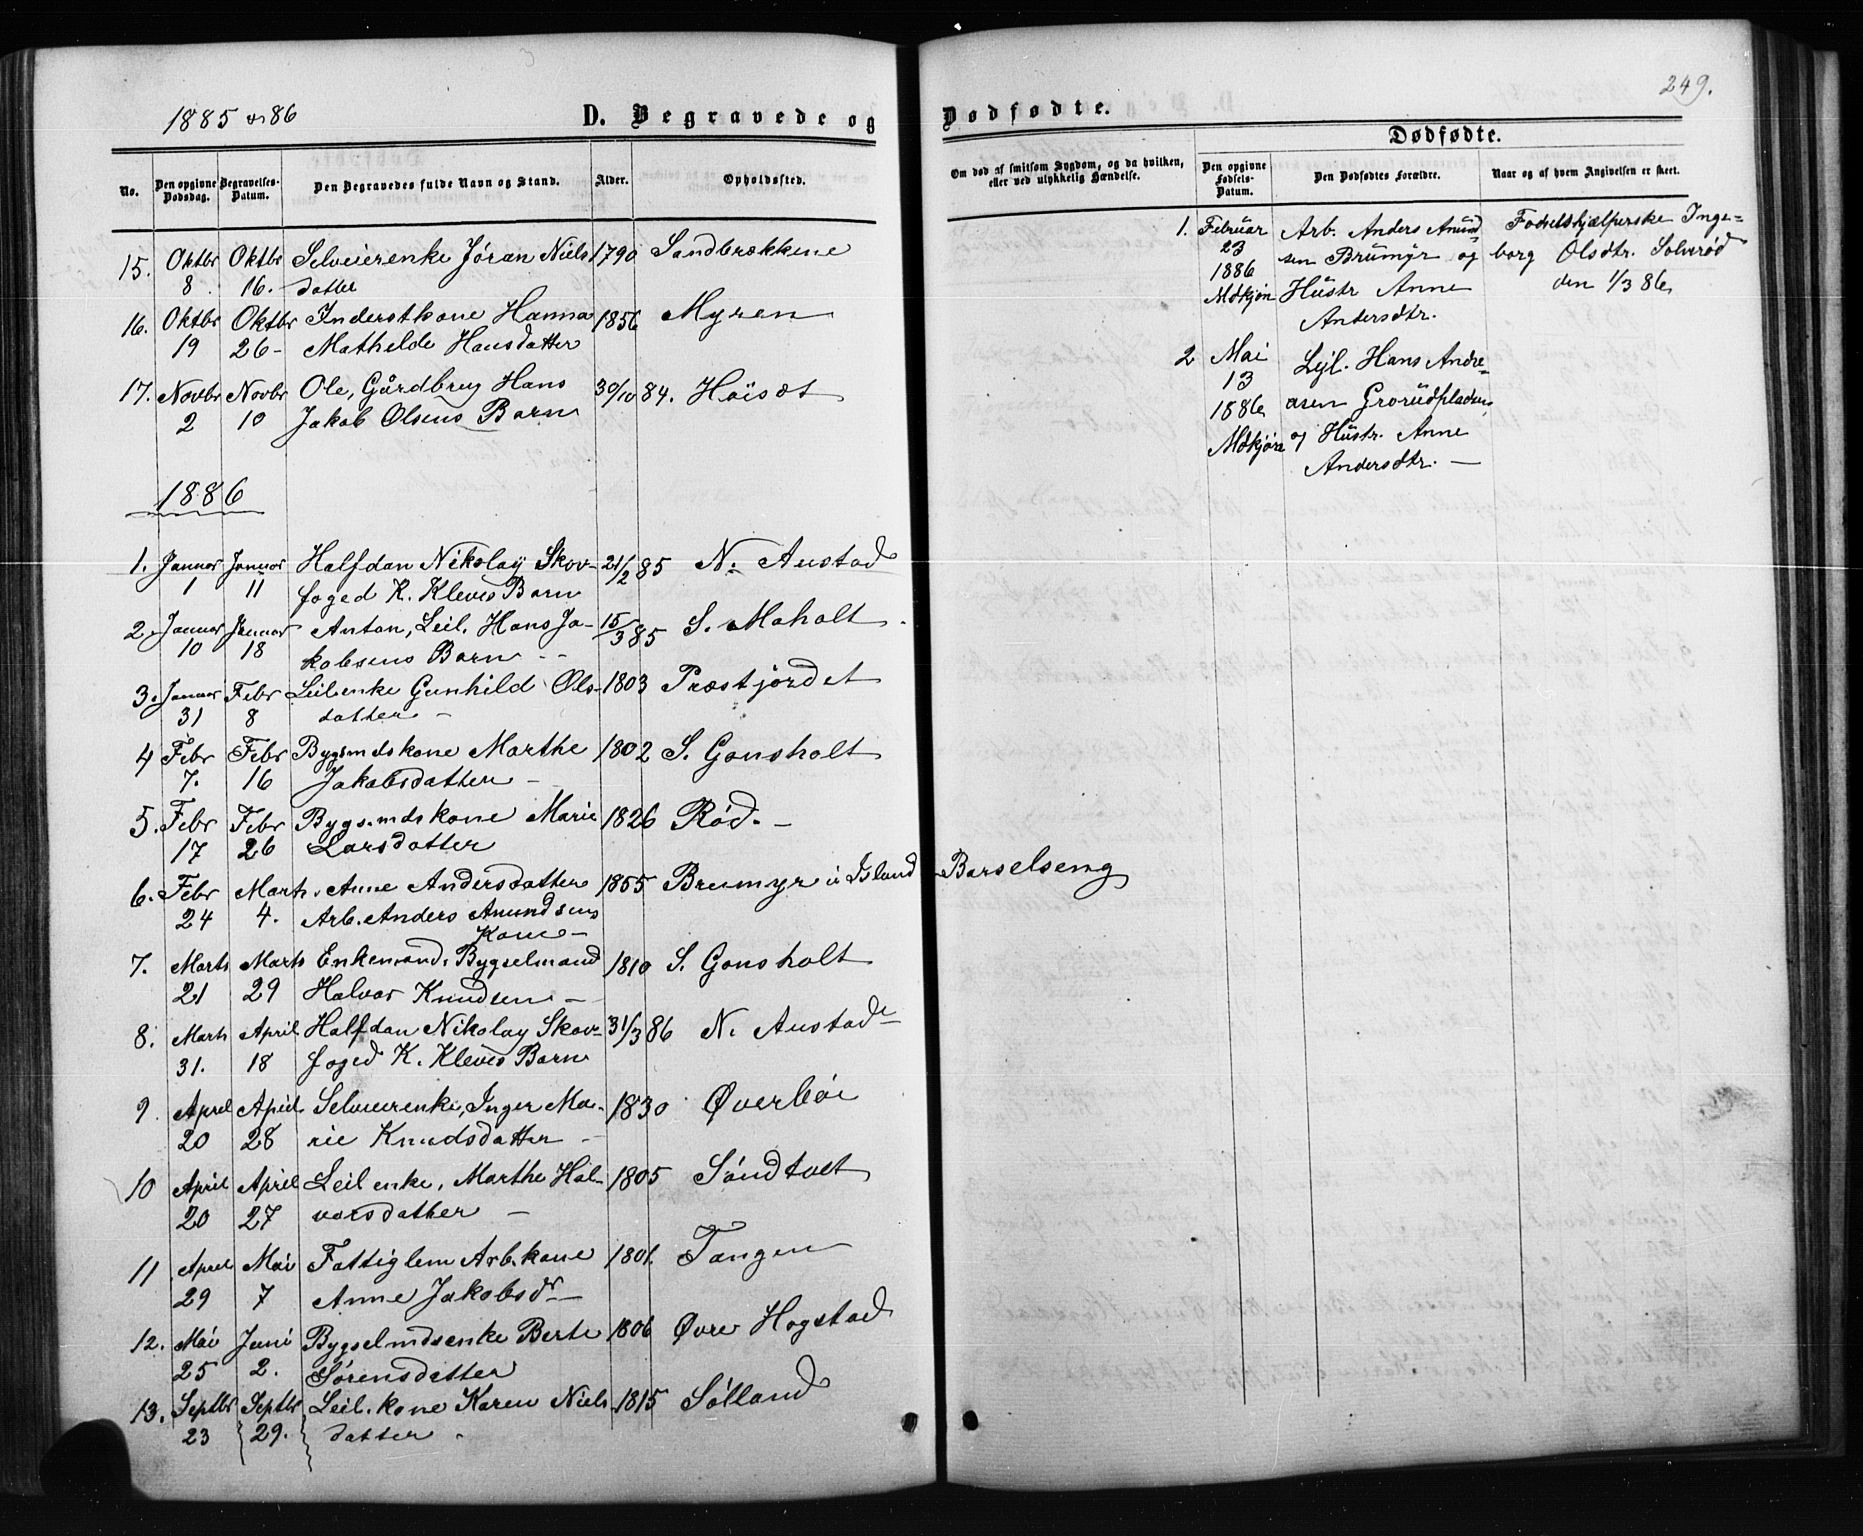 1885 og 86
D. Begravede og
No.
Den opgivne Dødsdag.
Begravelses-Datum.
Den Begravedes fulde Navn og Stand.
Alder.
Opholdssted.
15. Oktbr Oktbr Selveierenke Jøran Niels 1790 Sandbrækkene
8 16. datter
16. Oktbr Oktbr Inderstkone Hanna 1856 Myren
19 26 - Mathilde Hansdatter
17. Novbr Novbr Ole, Gårdbrug Hans 30/10 84. Høisæt
2 10 Jakob Olsens Barn
1886
1. Januar Januar Halfdan Nikolay Skov- 21/2 85 N. Austad
1 11 foged K. Klevies Barn
2. Januar Januar Anton, Leil. Hans Ja- 15/3 85 S. Moholt
10 18 kobsens Barn - -
3. Januar Febr Leilenke Gunhild Ols- 1803 Præstjordet
31 8 datter -
4 Febr Febr Bygsmdskone Marthe 1802 S. Gonsholt
7. 16 Jakobsdatter -
5. Febr Febr Bygs.mdskone Marie 1826 Rød. -
17 26 Larsdatter
6. Febr Marts Anne Andersdatter 1855 Brumyr i Island - Barselseng
24 4. Arb. Anders Anundsens
Kone -
7. Marts Marts Enkemand, Bygselmand 1810 S. Gonsholt
21 29 Halvor Knudsen -
8. Marts April Halfdan Nikolay Skov- 31/3 86 N. Austad -
31. 18 foged K. Klevies Barn
9 April April Selveierenke, Inger Ma- 1830 Øverbøe
20 28 rie Knudsdatter -
10 April April Leilenke, Marthe Hal- 1805 Søndtvet
20 27 vorsdatter -
11 April Mai Fattiglem Arb.kone 1801. Tangen
29 7 Anne Jakobsdr -
12. Mai Juni Bygselmdsenke Berte 1806 Øvre Hogstad
25 2. Sørensdatter
13. Septbr Septbr Leil. kone Karen Niels- 1815 Sølland
23 29. datter -
249.
Dødfødte.
Dødfødte.
Om død af smitsom Sygdom, og da hvilken,
eller ved ulykkelig Hændelse.
Den opgivne Fødsels-Datum.
Den Dødfødtes Forældre.
Naar og af hvem Angivelsen er skeet.
1. Februar Arb. Anders Anund Fødselshjælperske Inge=
23 sen Brumyr og borg Olsdtr. Solverød
1886 Hustr Anne den 1/3 86
Mdkjøn Andersdtr.
2 Mai Lejl. Hans Andre-
13 asen Grorudpladsen,
1886 og Hustr. Anne
Mdkjøn Andersdtr. -